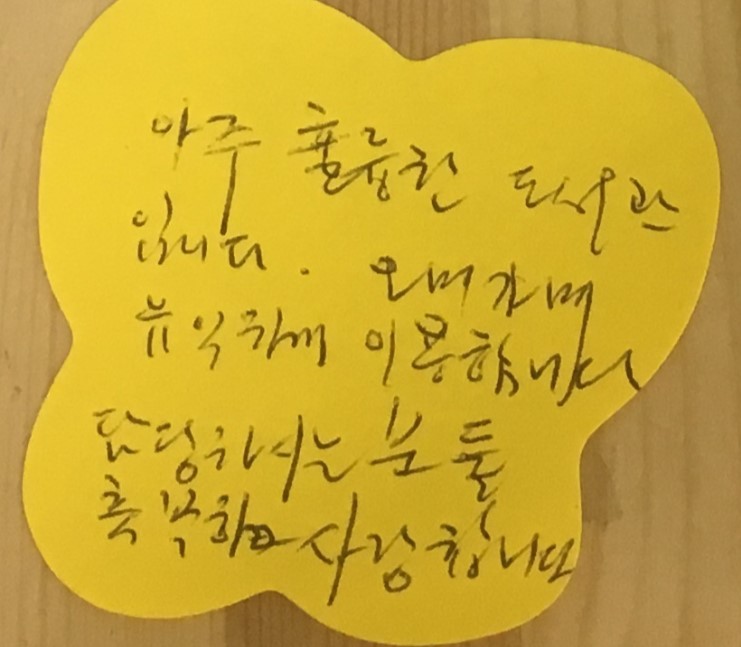 아주 훌륭한 도서관
입니다. 오며가며
뉴익하게 이용합니다
담당하시는 분들
축복하고 사랑합니다